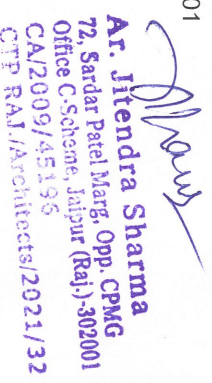 01
Ar. Jitendra Sharma
72, Sardar Patel Marg, Opp. CPMG
Office C-Scheme, Jaipur (Raj.)-302001
CA/2009/45196
CTP RAJ./Architects/2021/32